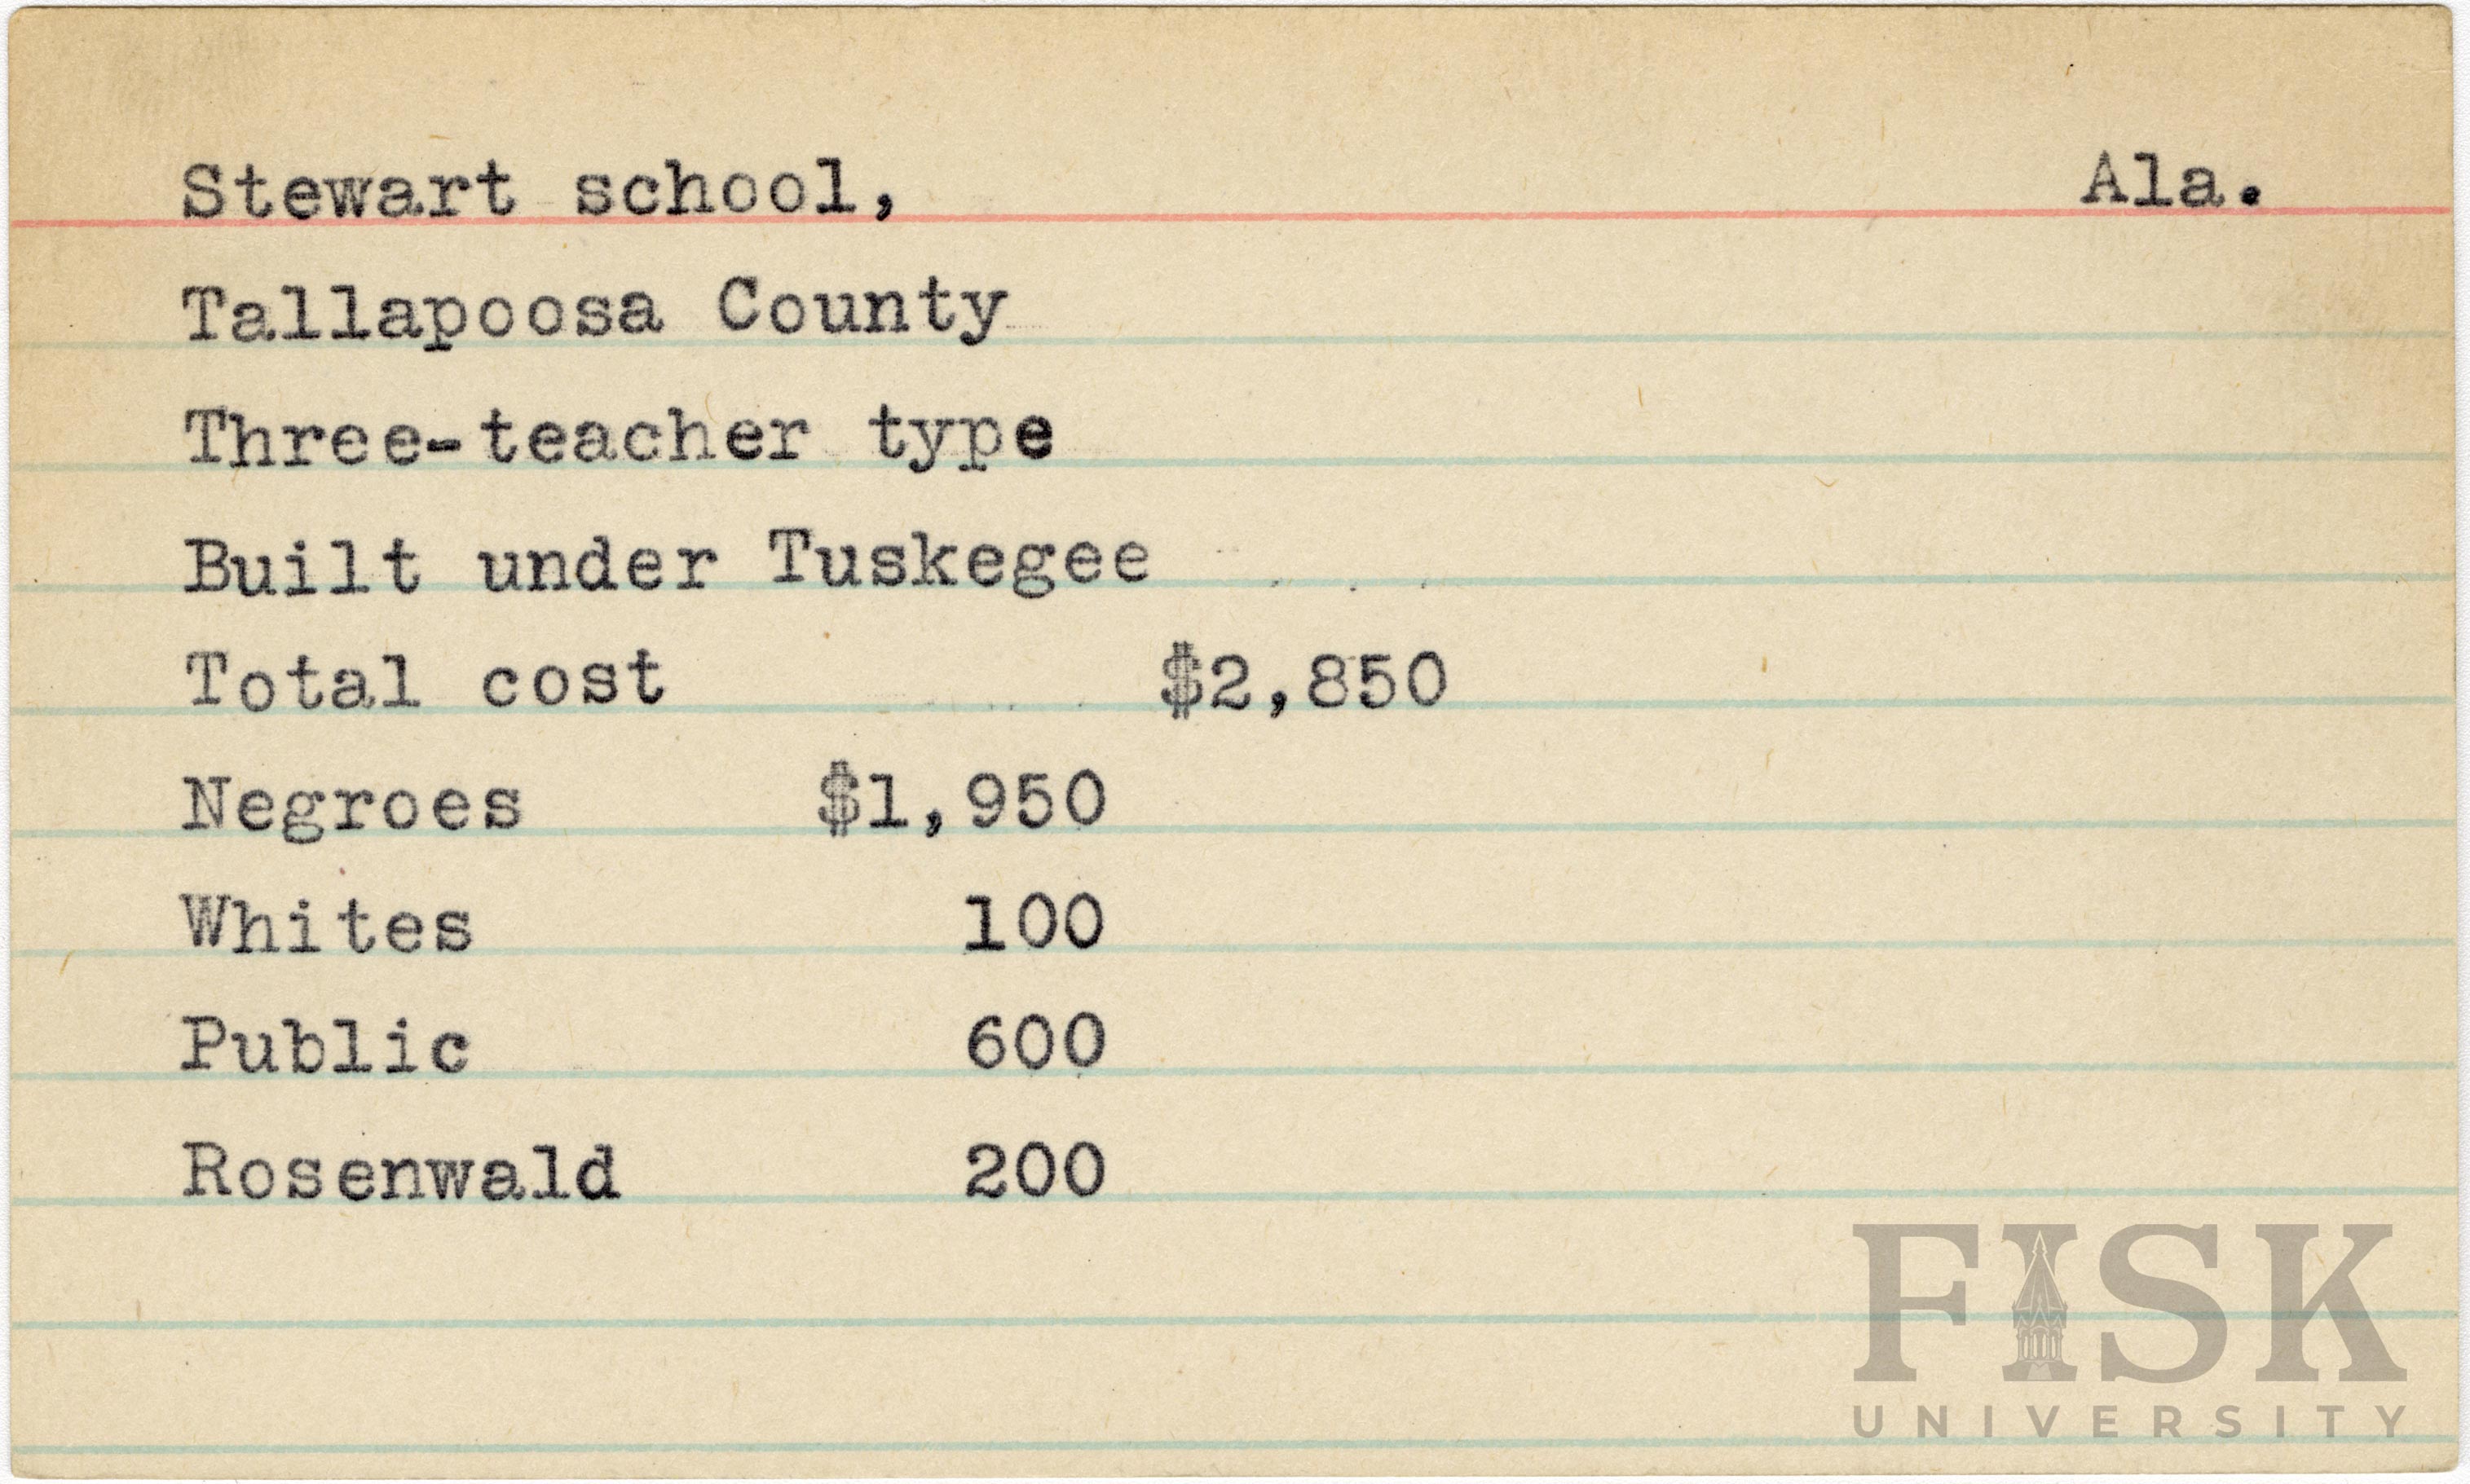 Stewart school, Ala.
Tallapoosa County
Three-teacher type
Built under Tuskegee
Total cost $2,850
Negroes $1,950
Whites 100
Public 600
Rosenwald 200
FISK
UNIVERSITY